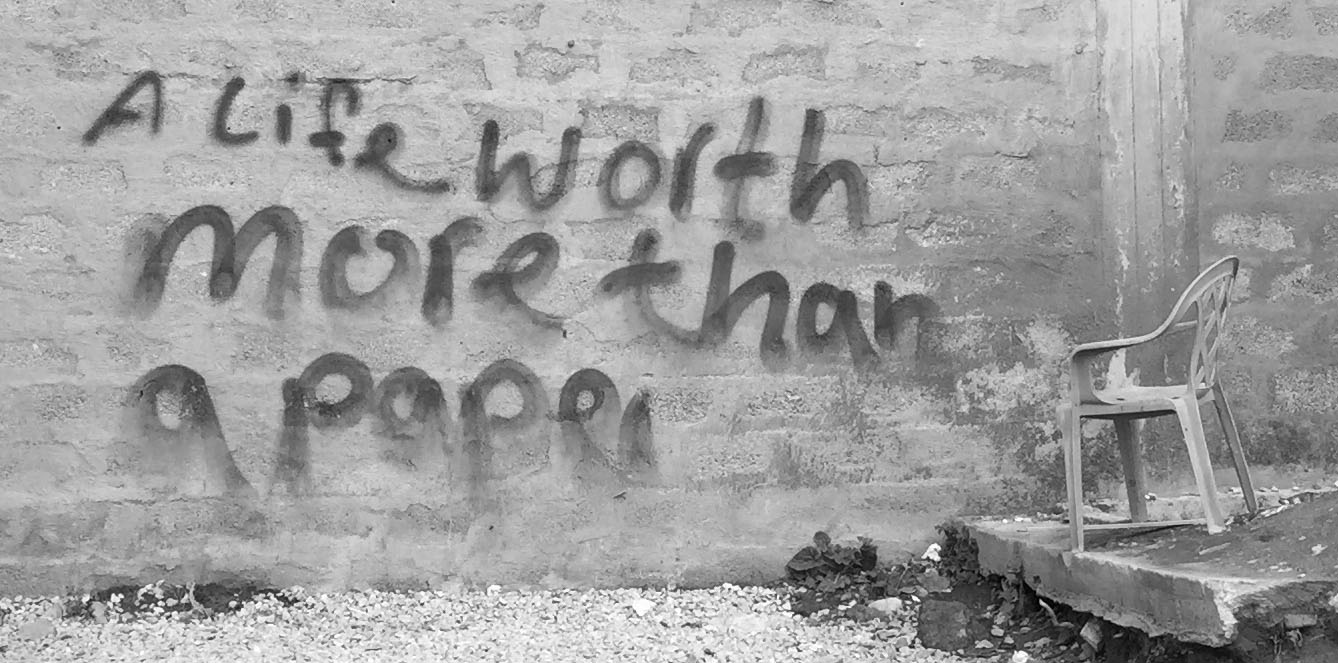 A life worth
more than
a paper